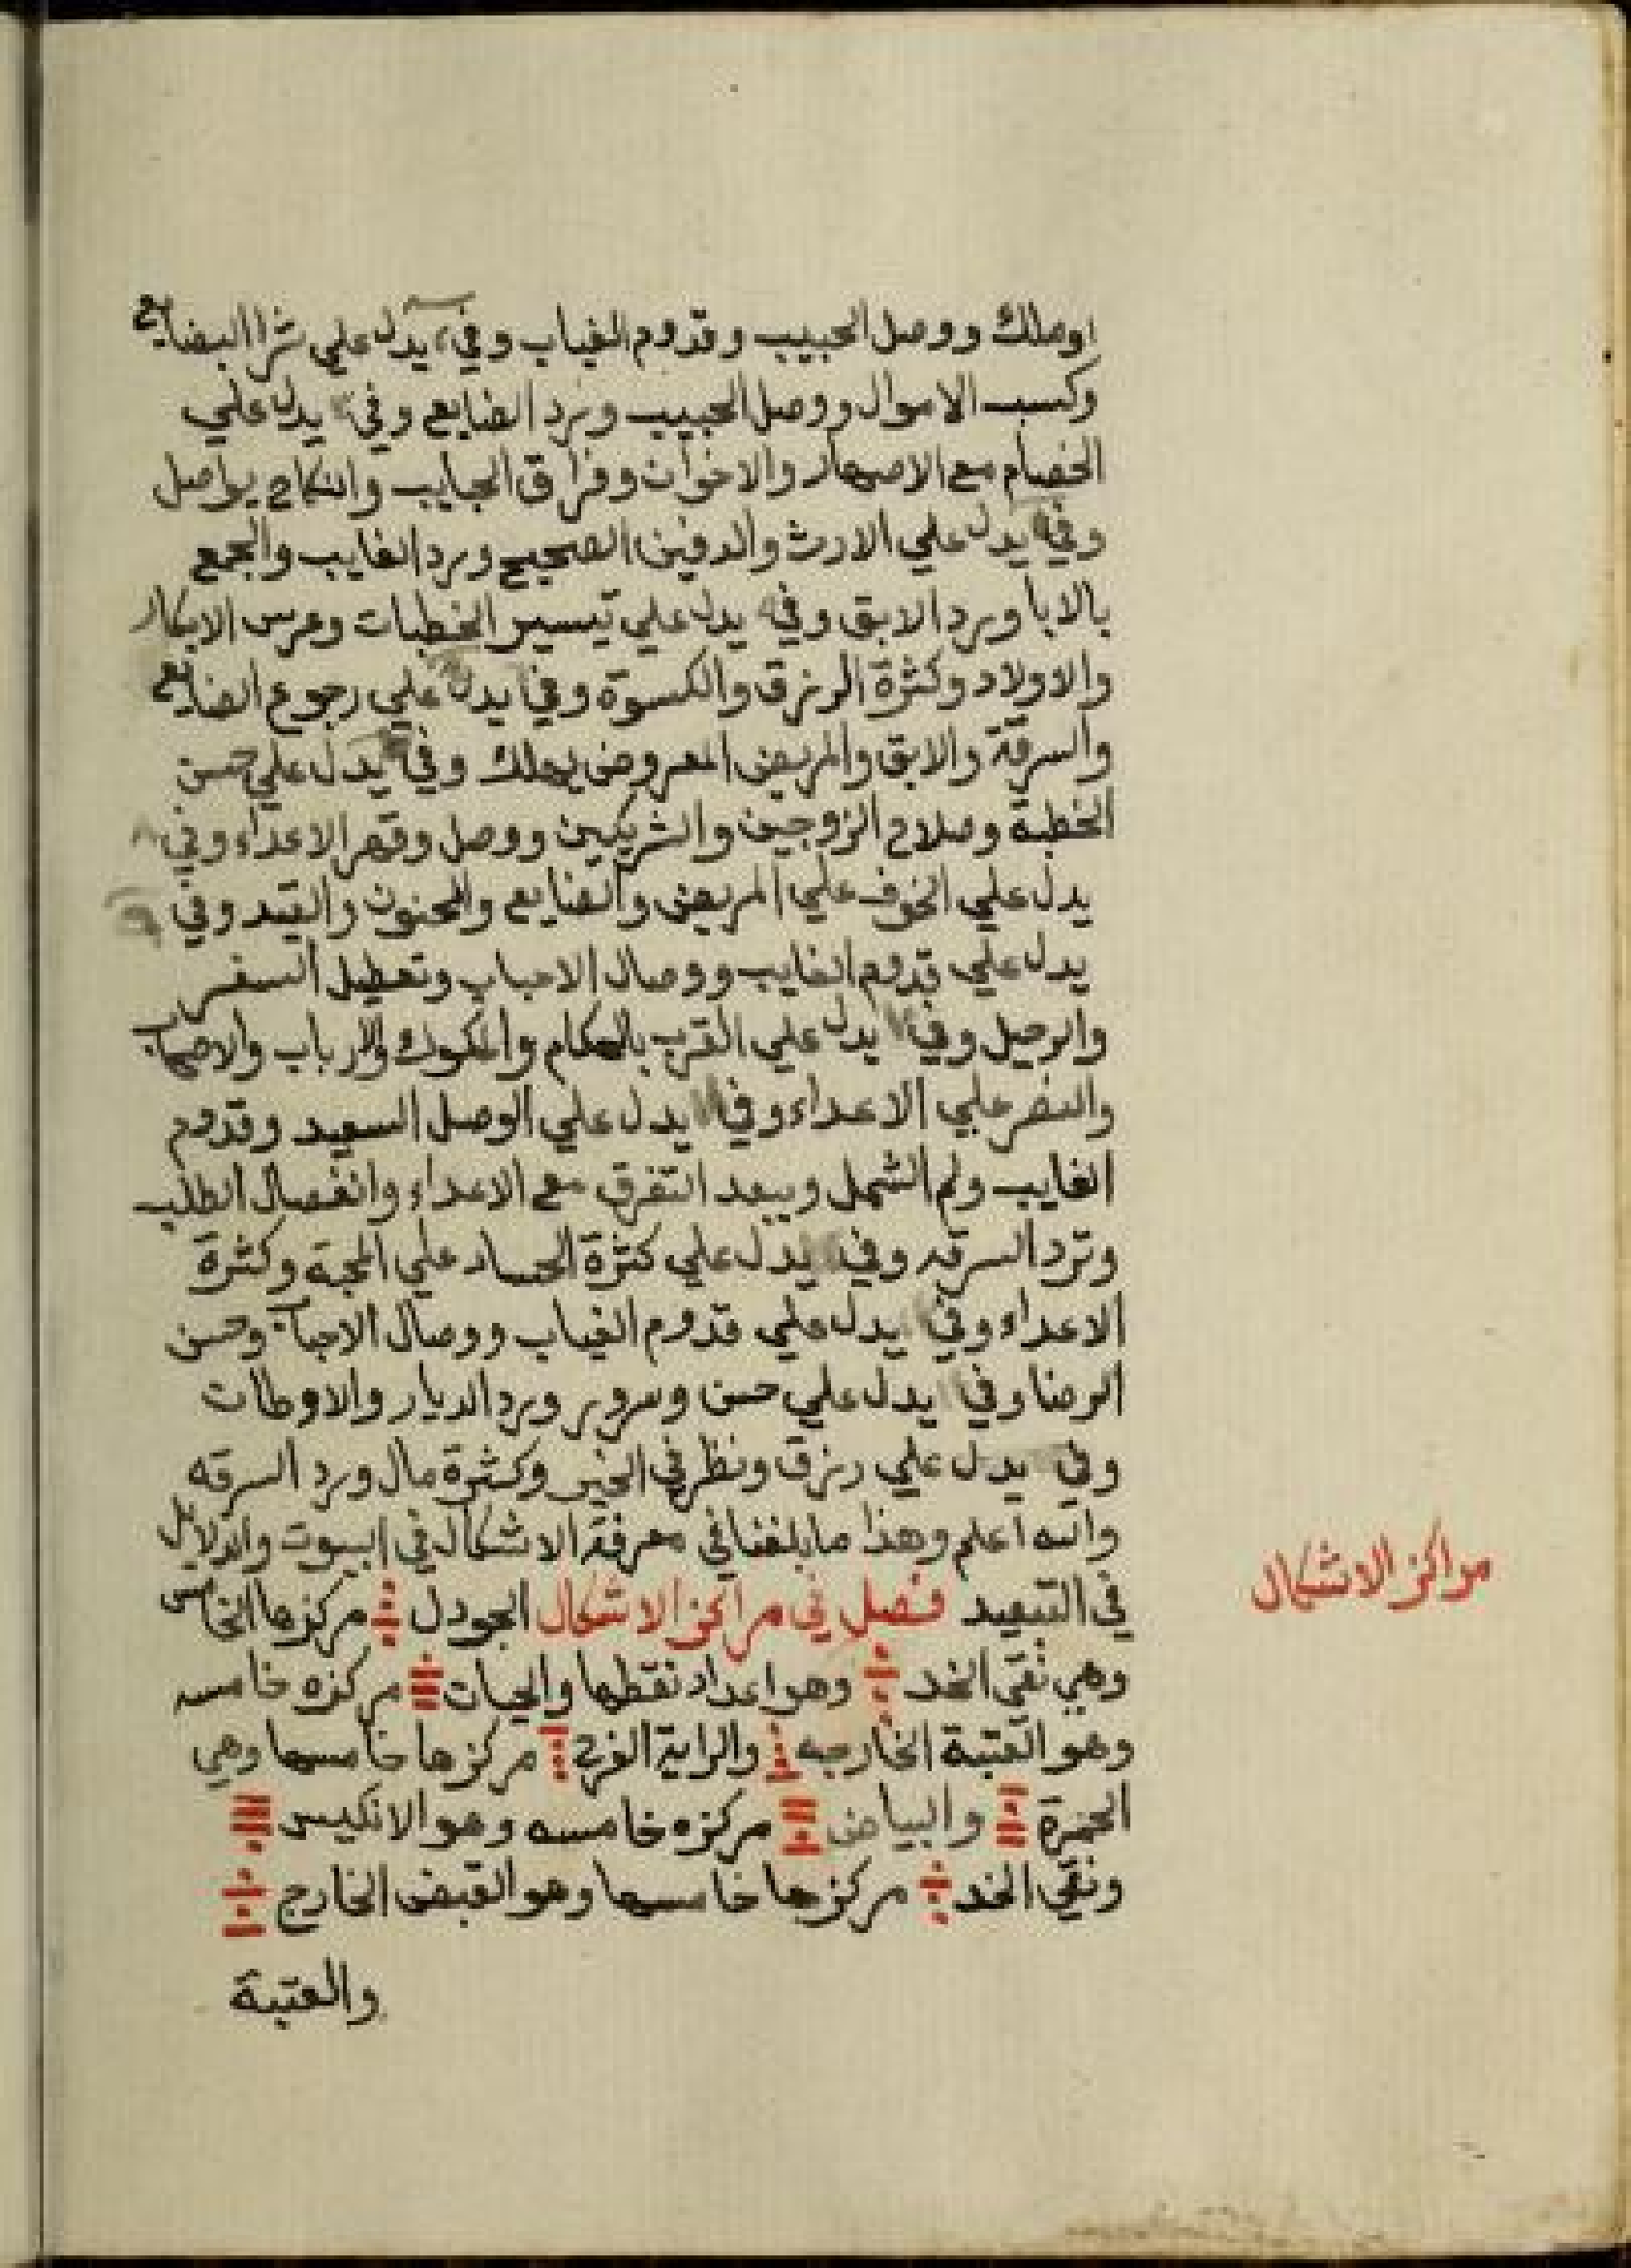 اوملك ووصل الحبيب وقدوم الغياب وفي يدل علي شرا البضايع
وكسب الاموال ووصل الحبيب ويرد الضايع وفي يدل علي
الخصام مع الاصهار والاخوان وفراق الحبايب والنكاح يواصل
وفي يدل علي الارث والدفين الصحيح ورد الغايب والجمع
بالابا ويرد الابق وفي يدل علي تيسير الخطبات وعرس الابكار
والاولاد وكثرة الرزق والكسوة وفي يدل علي رجوع الضايع
والسرقة والابق والمريض المعروض يهلك وفي يدل علي حسن
الخطبة وصلاح الزوجين والشريكين ووصل وقهر الاعداء وفي ٨
يدل علي الخوف علي المريض والضايع والمجنون والقيد وفي
يدل علي قدوم الغايب ووصال الاحباب وتعطيل السفر
والرحيل وفي يدل علي القرب بالحكام والملوك والارباب والاصحاب
والنصر علي الاعداء وفي يدل علي الوصل السعيد وقدوم
الغايب ولم الشمل ويبعد التفرق مع الاعداء وانفصال الطلب
وترد السرقه وفي يدل علي كثرة الحساد علي المحبة وكثرة
الاعداء وفي يدل علي قدوم الغياب ووصال الاحباب وحسن
الرضا وفي يدل علي حسن وسرور ويرد الديار والاوطان
وفي يدل علي رزق ونظر في الخير وكثرة مال ورد السرقه
والله اعلم وهذا ما بلغنا في معرفة الاشكال في البيوت والدلايل
في التسعيد فصل في مراكز الاشكال الجودل مركزها الخامس
مراكز الاشكال
وهي نقي الخد وهو اعداد نقطها والحيات مركزه خامسه
وهو العتبة الخارجه والراية الفرح مركزها خامسها وهي
الحمرة والبياض مركزه خامسه وهو الانكيس
ونقي الخد مركزها خامسها وهو القبض الخارج
والعتبة